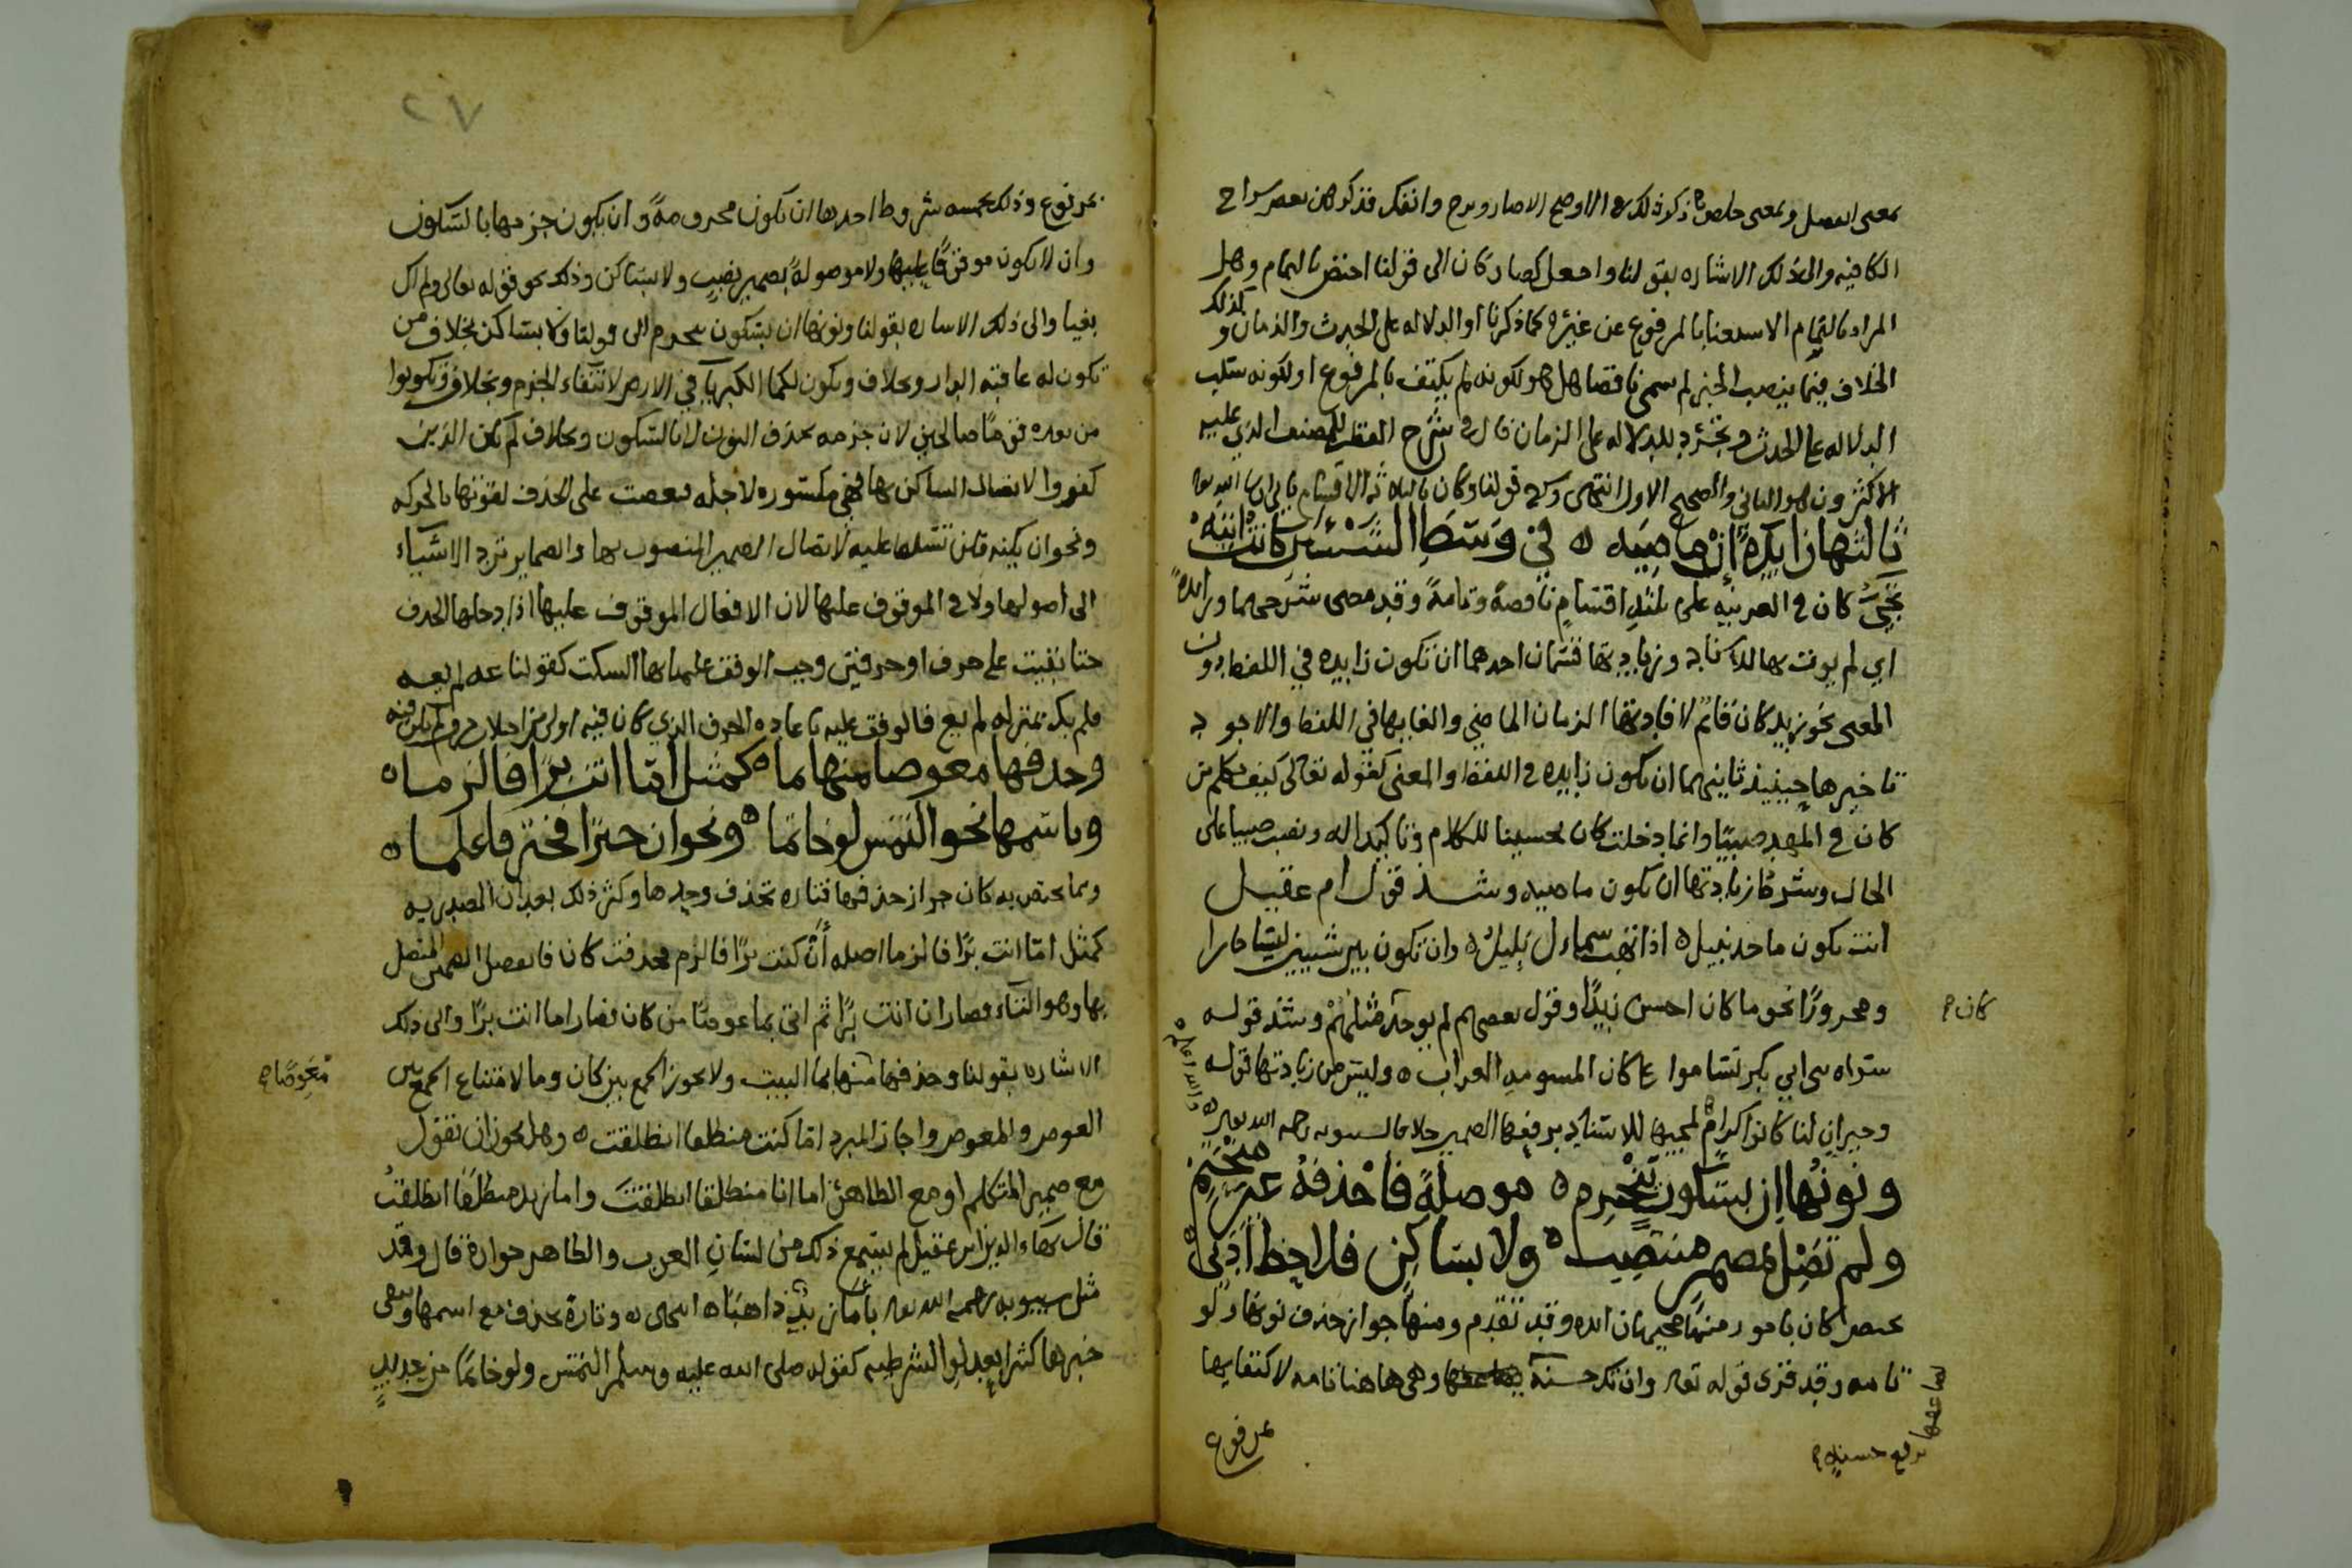 بمعنى انفصل وبمعنى خلص ذكر ذلك في الاوضح الا صار وبرح وانفك فذكرهن بعض شراح
الكافيه والى ذلك الاشاره بقولنا واجعل كصار كان الى قولنا اخصص بالتمام وهل
المراد بالتمام الاستغنا بالمرفوع عن غيره كما ذكرنا او الدلاله على الحدث والزمان وكذلك
الخلاف فيما ينصب الخبر لم سمي ناقصا هل هو لكونه لم يكتف بالمرفوع او لكونه سلب
الدلاله على الحدث وتجرد للدلاله على الزمان قال في شرح القطر للمصنف الذي عليه
الاكثرون هو الثاني والصحيح الاول انتهى
ثالثها زايدة إن ماضيه ه في وسط الشيئين كانت اتيه
تجيء كان في العربيه على ثلثة اقسام ناقصة وتامة وقد مضى شرحهما وزايدة
اي لم يوت بها للاسناد وزيادتها قسمان احدهما ان تكون زايده في اللفظ دون
المعنى نحو زيد كان قائم لافادتها الزمان الماضي والغايها في اللفظ والاجود
تاخيرها حينيذ ثانيهما ان تكون زايده في اللفظ والمعنى كقوله تعالى كيف نكلم من
كان في المهد صبيا وانما دخلت كان تحسينا للكلام وتاكيدا له ونصب صبيا على
الحال وشرط زيادتها ان تكون ماضيه وشذ قول ام عقيل
انت تكون ماجد نبيل ه اذا تهب شمال بليل ه وان تكون بين شيين ليسا جارا
ومجرورا نحو ما كان احسن زيدا وقول بعضهم لم يوجد كان مثلهم وشذ قوله
سراه بني ابي بكر تساموا على كان المسومه العراب ه وليس من زيادتها قوله
وجيران لنا كانوا كرام لمجيها للاسناد برفعها الضمير خلافا لسيبويه رحمه الله تعالى
والله اعلم
ونونها ان بسكون تنجزم ه موصلة فاحذفه غير منحتم
ولم تصل بمضمر منتصب ه ولا بساكن فلاحظ ادبي
تختص كان بامور منها مجيها زايده وقد تقدم ومنها جواز حذف نونها ولو
تامه وقد قرئ قوله تعالى وان تك حسنة يضاعفها وهي هاهنا تامه لاكتفايها
برفع حسنة
بمرفوع
٢٧
بمرفوع وذلك بخمسه شروط احدها ان تكون مجزومة وان يكون جزمها بالسكون
وان لا تكون موقوفا عليها ولا موصولة بضمير نصب ولا بساكن وذلك نحو قوله تعالى ولم اك
بغيا والى ذلك الاشاره بقولنا ونونها ان بسكون تنجزم الى قولنا ولا بساكن بخلاف من
تكون له عاقبه الدار وبخلاف وتكون لكما الكبريا في الارض لانتفاء الجزم وبخلاف وتكونوا
من بعده قوما صالحين لان جزمه بحذف النون لا بالسكون وبخلاف لم يكن الذين
كفروا لاتصال الساكن بها فهي مكسوره لاجله فعصت على الحذف لقوتها بالحركه
ونحو ان يكنه فلن تسلط عليه لاتصال الضمير المنصوب بها والضماير ترد الاشياء
الى اصولها ولا في الموقوف عليها لان الافعال الموقوف عليها اذا دخلها الحذف
حتا بقيت على حرف او حرفين وجب الوقف عليها بها السكت كقولنا عه لم يعه
فلم يك بمنزله لم يع فالوقف عليه باعاده الحرف الذي كان فيه اولى من اجتلاب حرف لم يكن فيه
وحذفها معوضا منها ما ه كمثل اما انت برا فالزما ه
وباسمها نحو التمس لو خاتما ه ونحو ان خيرا فخير فاعلما ه
ومما تختص به كان جواز حذفها فتاره تحذف وحدها وكثر ذلك بعد ان المصدريه
كمثل اما انت برا فالزما اصله أن كنت برا فالزم فحذفت كان فانفصل الضمير المتصل
بها وهو التاء فصار ان انت برا ثم اتى بما عوضا من كان فصار اما انت برا والى ذلك
الاشاره بقولنا وحذفها معوضا منها بما البيت ولا يجوز الجمع بين كان وما لامتناع الجمع بين
العوض والمعوض واجاز المبرد اما كنت منطلقا انطلقت ه وهل يجوز ان تقول
مع ضمير المتكلم او مع الظاهر اما انا منطلقا انطلقت واما زيد منطلقا انطلقت
قال بهاء الدين ابن عقيل لم يسمع ذلك من لسان العرب والظاهر جوازه قال وقد
مثل سيبويه رحمه الله تعالى باما زيد ذاهبا ه انتهى ه وتارة تحذف مع اسمها ويبقى
خبرها كثيرا بعد لو الشرطيه كقوله صلى الله عليه وسلم التمس ولو خاتما من حديد